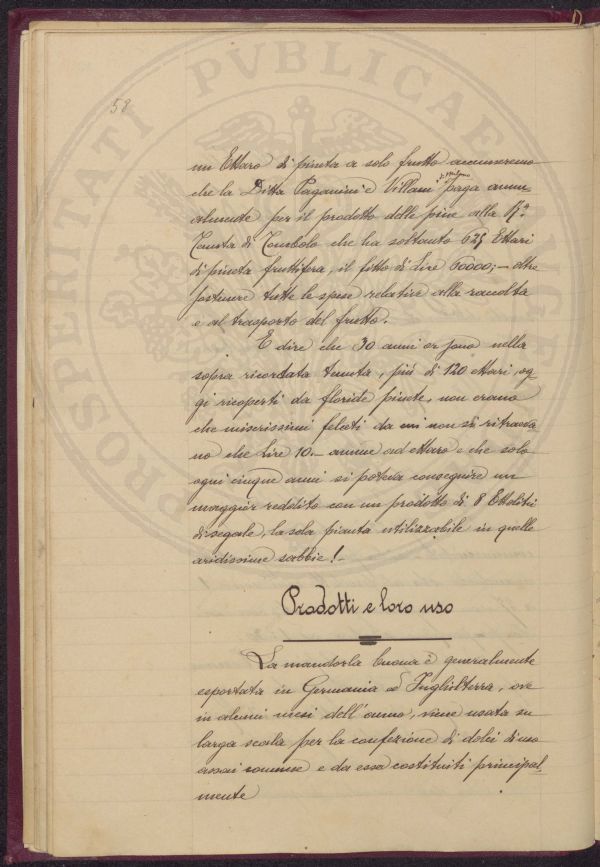 58
un Ettaro di pineta a solo frutto accenneremo
che la Ditta Paganini e Villani di Milano paga annu
almente per il prodotto delle pine alla R.a
Tenuta di Tombolo che ha soltanto 625 Ettari
di pineta fruttifera, il fitto di Lire 60000;- oltre
sostenere tutte le spese relative alla raccolta
e al trasporto del frutto.
E dire che 30 anni or sono nella
sopra ricordata tenuta, più di 120 ettari, og
gi ricoperti da floride pinete, non erano
che miserissimi felceti da cui non si ritraeva
no che Lire 10.- annue ad ettaro e che solo
ogni cinque anni si poteva conseguire un
maggior reddito con un prodotto di 8 Ettolitri
di segale, la sola pianta utilizzabile in quelle
aridissime sabbie!-
Prodotti e loro uso
La mandorla buona è generalmente
esportata in Germania ed Inghilterra, ove
in alcuni mesi dell'anno, viene usata su
larga scala per la confezione di dolci di uso
assai comune e da essa costituiti principal-
mente
PROSPERITATI PVBLICAE AVGE